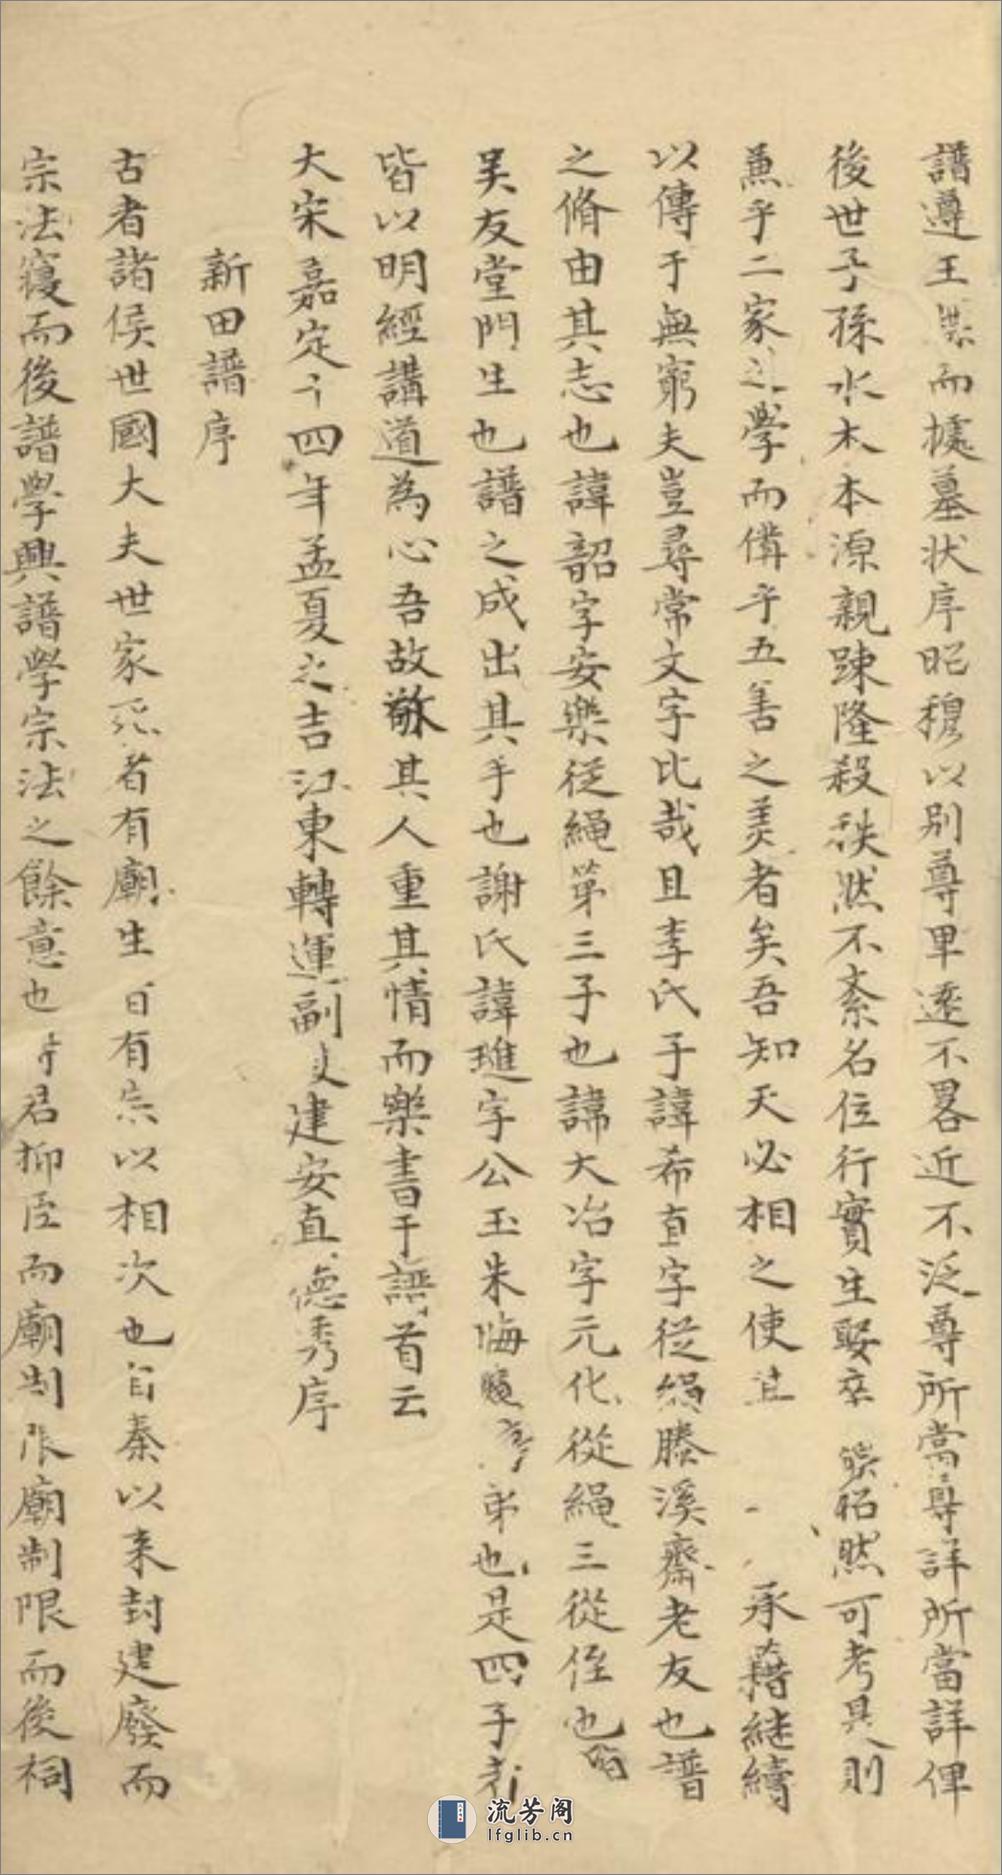 譜遵王 而據墓状序昭穆以別尊卑逺不畧近不泛尊所當尊詳所當詳俾
後世子孫水木本源親踈隆殺秩然不紊名位行實生娶卒 昭然可考具則
兼乎二家之學而備乎五善之美者矣吾知天必相之使 承藉継續
以傳于無窮夫豈尋常文字比哉且李氏子諱希直字従繩滕溪齋老友也譜
之脩由其志也諱韶字安樂従繩第三子也諱大冶字元化從繩三從侄也
吴友堂門生也譜之成出其手也謝氏諱璡字公玉朱晦 弟也是四子者
皆以明經講道為心吾故敬其人重其情而樂書于譜首云
大宋嘉定十四年孟夏之吉江東轉運副 建安真德秀序
新田譜序
古者諸侯世國大夫世家死者有廟生 有宗以相次也自秦以来封建廢而
宗法寢而後譜學興譜學宗法之餘意也 君抑臣而廟制 廟制限而後祠
流芳阁
lfglib.cn